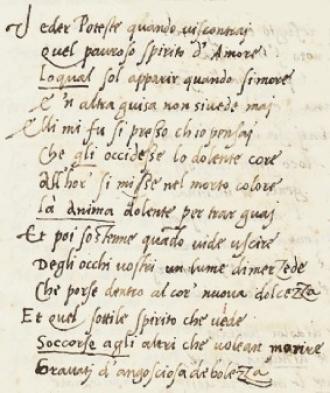 Veder Poteste quando uiscontrai
Quel pauroso spirito d'Amore
Loqual sol apparir quando simore
E 'n altra guisa non siuede mai
Elli mi fu si presso ch io pensai
Che gli occidesse lo dolente core
All'hor si misse nel morto colore
La Anima dolente per trar guaj
Et poi sostenne quando uide uscire
Degli occhi vostri un lume dimerzede
Che porse dentro al cor' nuova dolcezza
Et quel sottile spirito che vede
Soccorse agli altri che volean morire
Gravati d'angosciosa debolezza